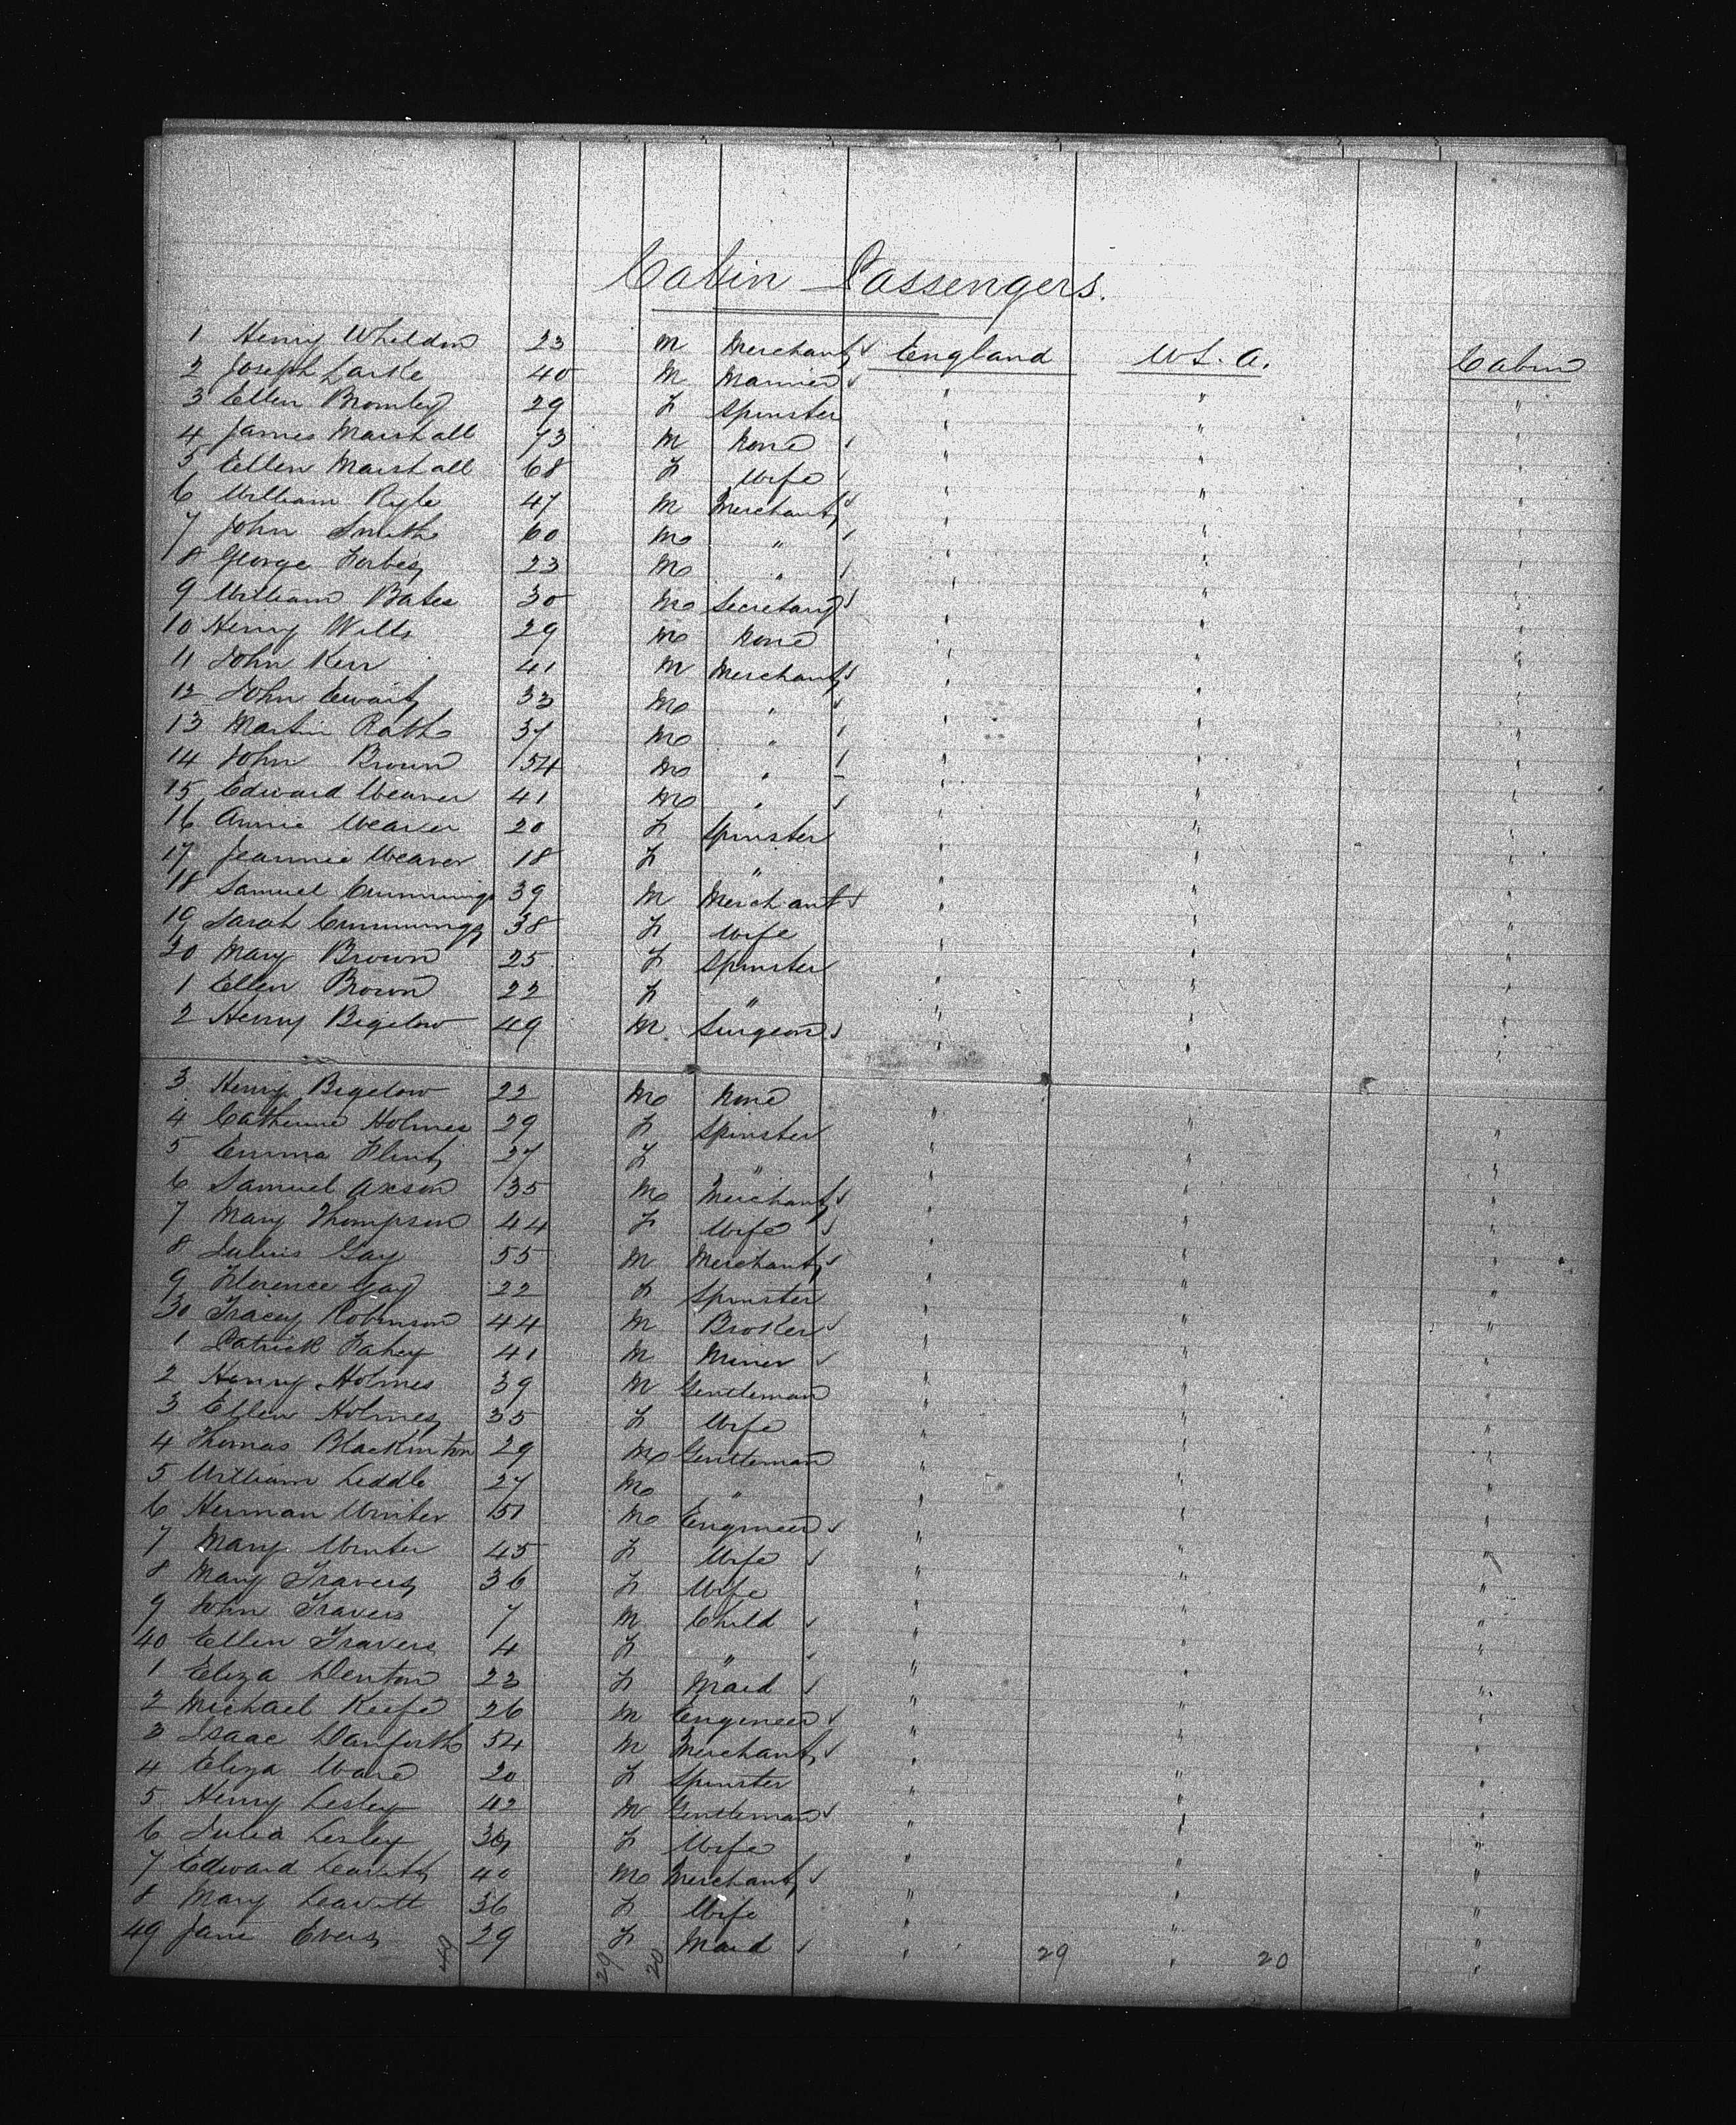 Cabin Passengers.
1 Henry Wheldon 23 M Merchant England U.S.A. Cabin
2 Joseph Larke 40 M Mariner " " "
3 Ellen Bromley 29 F Spinster " " "
4 James Marshall 73 M None " " "
5 Ellen Marshall 68 F Wife " " "
6 William Ryle 47 M Merchant " " "
7 John Smith 60 M " " " "
8 George Forbes 23 M " " " "
9 William Bates 30 M Secretary " " "
10 Henry Wills 29 M None " " "
11 John Kerr 41 M Merchant " " "
12 John Ewart 33 M " " " "
13 Martin Rath 37 M " " " "
14 John Brown 54 M " " " "
15 Edward Weaver 41 M " " " "
16 Annie Weaver 20 F Spinster " " "
17 Jeannie Weaver 18 F " " " "
18 Samuel Cummings 39 M Merchant " " "
19 Sarah Cummings 38 F Wife " " "
20 Mary Brown 25 F Spinster " " "
1 Ellen Brown 22 F " " " "
2 Henry Bigelow 49 M Surgeon " " "
3 Henry Bigelow 22 M None " " "
4 Catherine Holmes 29 F Spinster " " "
5 Emma Flint 27 F " " " "
6 Samuel Axson 35 M Merchant " " "
7 Mary Thompson 44 F Wife " " "
8 Julius Gay 55 M Merchant " " "
9 Florence Gay 22 F Spinster " " "
30 Tracey Robinson 44 M Broker " " "
1 Patrick Fahey 41 M Miner " " "
2 Henry Holmes 39 M Gentleman " " "
3 Ellen Holmes 35 F Wife " " "
4 Thomas Blackinton 29 M Gentleman " " "
5 William Leddle 27 M " " " "
6 Herman Winter 51 M Engineer " " "
7 Mary Winter 45 F Wife " " "
8 Mary Travers 36 F Wife " " "
9 John Travers 7 M Child " " "
40 Ellen Travers 4 F " " " "
1 Eliza Denton 23 F Maid " " "
2 Michael Keefe 26 M Engineer " " "
3 Isaac Danforth 54 M Merchant " " "
4 Eliza Ware 20 F Spinster " " "
5 Henry Lesley 42 M Gentleman " " "
6 Julia Lesley F Wife " " "
7 Edward Leavitt 40 M Merchant " " "
8 Mary Leavitt 36 F Wife " " "
49 Jane Evers 29 F Maid " " "
49 29 20 29 20